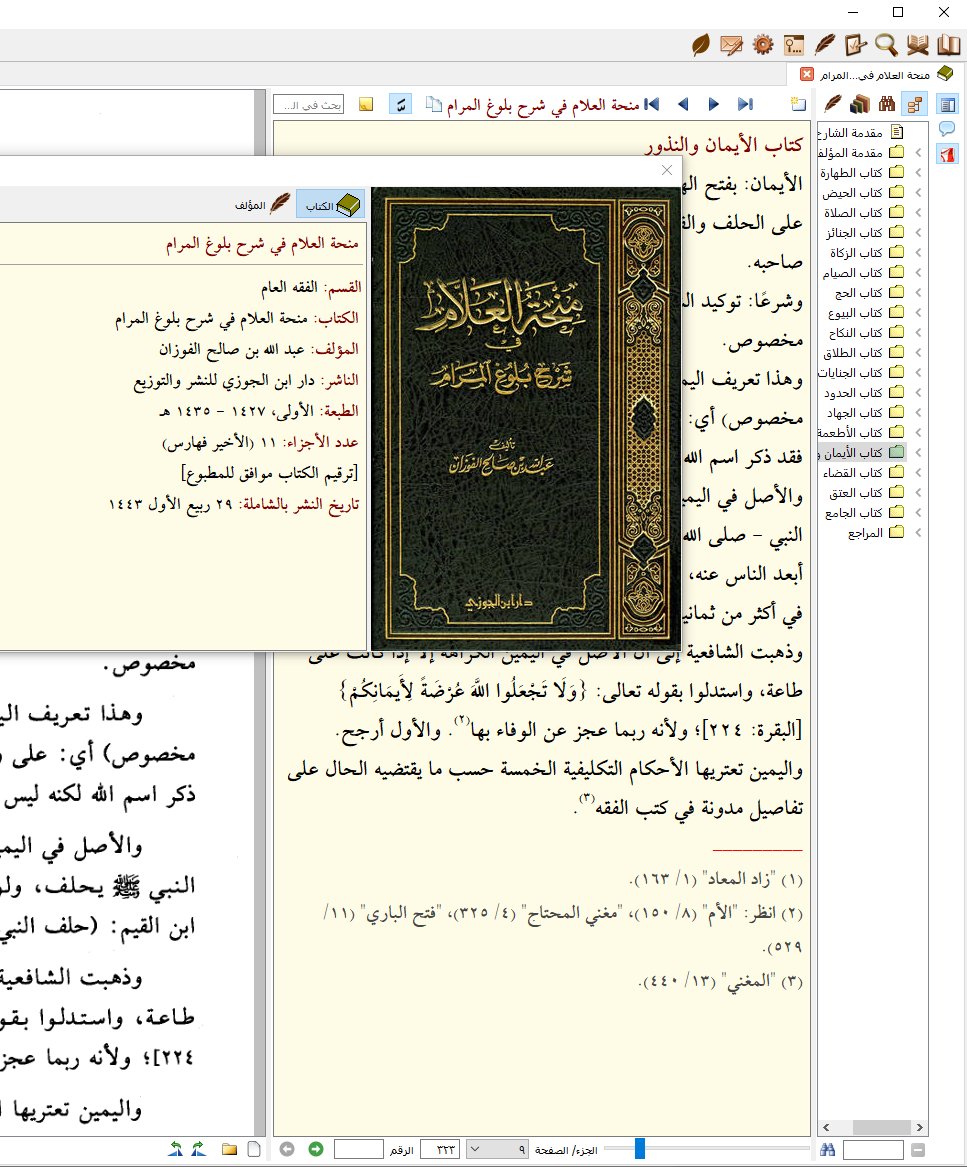 منحة العلام في...المرام
بحث في الـ...
منحة العلام في شرح بلوغ المرام
مقدمة الشارح
مقدمة المؤلف
كتاب الطهارة
كتاب الحيض
كتاب الصلاة
كتاب الجنائز
كتاب الزكاة
كتاب الصيام
كتاب الحج
كتاب البيوع
كتاب النكاح
كتاب الطلاق
كتاب الجنايات
كتاب الحدود
كتاب الجهاد
كتاب الأطعمة
كتاب الأيمان و
كتاب القضاء
كتاب العتق
كتاب الجامع
المراجع
كتاب الأيمان والنذور
الأيمان: بفتح
على الحلف
صاحبه.
وشرعًا: توكيد
مخصوص.
وهذا تعريف
مخصوص) أي:
فقد ذكر اسم الله
والأصل في
النبي - صلى الله
أبعد الناس عنه،
في أكثر من
وذهبت الشافعية إلى أن الأصل في اليمين الكراهة إلا إذا كانت على
طاعة، واستدلوا بقوله تعالى: {وَلَا تَجْعَلُوا اللَّهَ عُرْضَةً لِأَيمَانِكُمْ}
[البقرة: ٢٢٤]؛ ولأنه ربما عجز عن الوفاء بها(٢). والأول أرجح.
واليمين تعتريها الأحكام التكليفية الخمسة حسب ما يقتضيه الحال على
تفاصيل مدونة في كتب الفقه(٣).
(١) "زاد المعاد" (١/ ١٦٣).
(٢) انظر: "الأم" (٨/ ١٥٠)، "مغني المحتاج" (٤/ ٣٢٥)، "فتح الباري" (١١/
٥٢٩).
(٣) "المغني" (١٣/ ٤٤٠).
الكتاب
المؤلف
منحة العلام في شرح بلوغ المرام
القسم: الفقه العام
الكتاب: منحة العلام في شرح بلوغ المرام
المؤلف: عبد الله بن صالح الفوزان
الناشر: دار ابن الجوزي للنشر والتوزيع
الطبعة: الأولى، ١٤٢٧ - ١٤٣٥ هـ
عدد الأجزاء: ١١ (الأخير فهارس)
[ترقيم الكتاب موافق للمطبوع]
تاريخ النشر بالشاملة: ٢٩ ربيع الأول ١٤٤٣
مِنْحَةُ العَلَّامِ
في
شَرْحِ بُلُوغِ المَرَامِ
تأليف
عبد الله بن صالح الفوزان
دار ابن الجوزي
مخصوص.
وهذا تعريف
مخصوص) أي: على
ذكر اسم الله لكنه ليس
والأصل في
النبي ﷺ يحلف،
ابن القيم: (حلف النبي
وذهبت الشافعية
طاعة، واستدلوا
٢٢٤]؛ ولأنه ربما عجز
واليمين تعتريها
الجزء/ الصفحة
٩
٣٢٣
الرقم